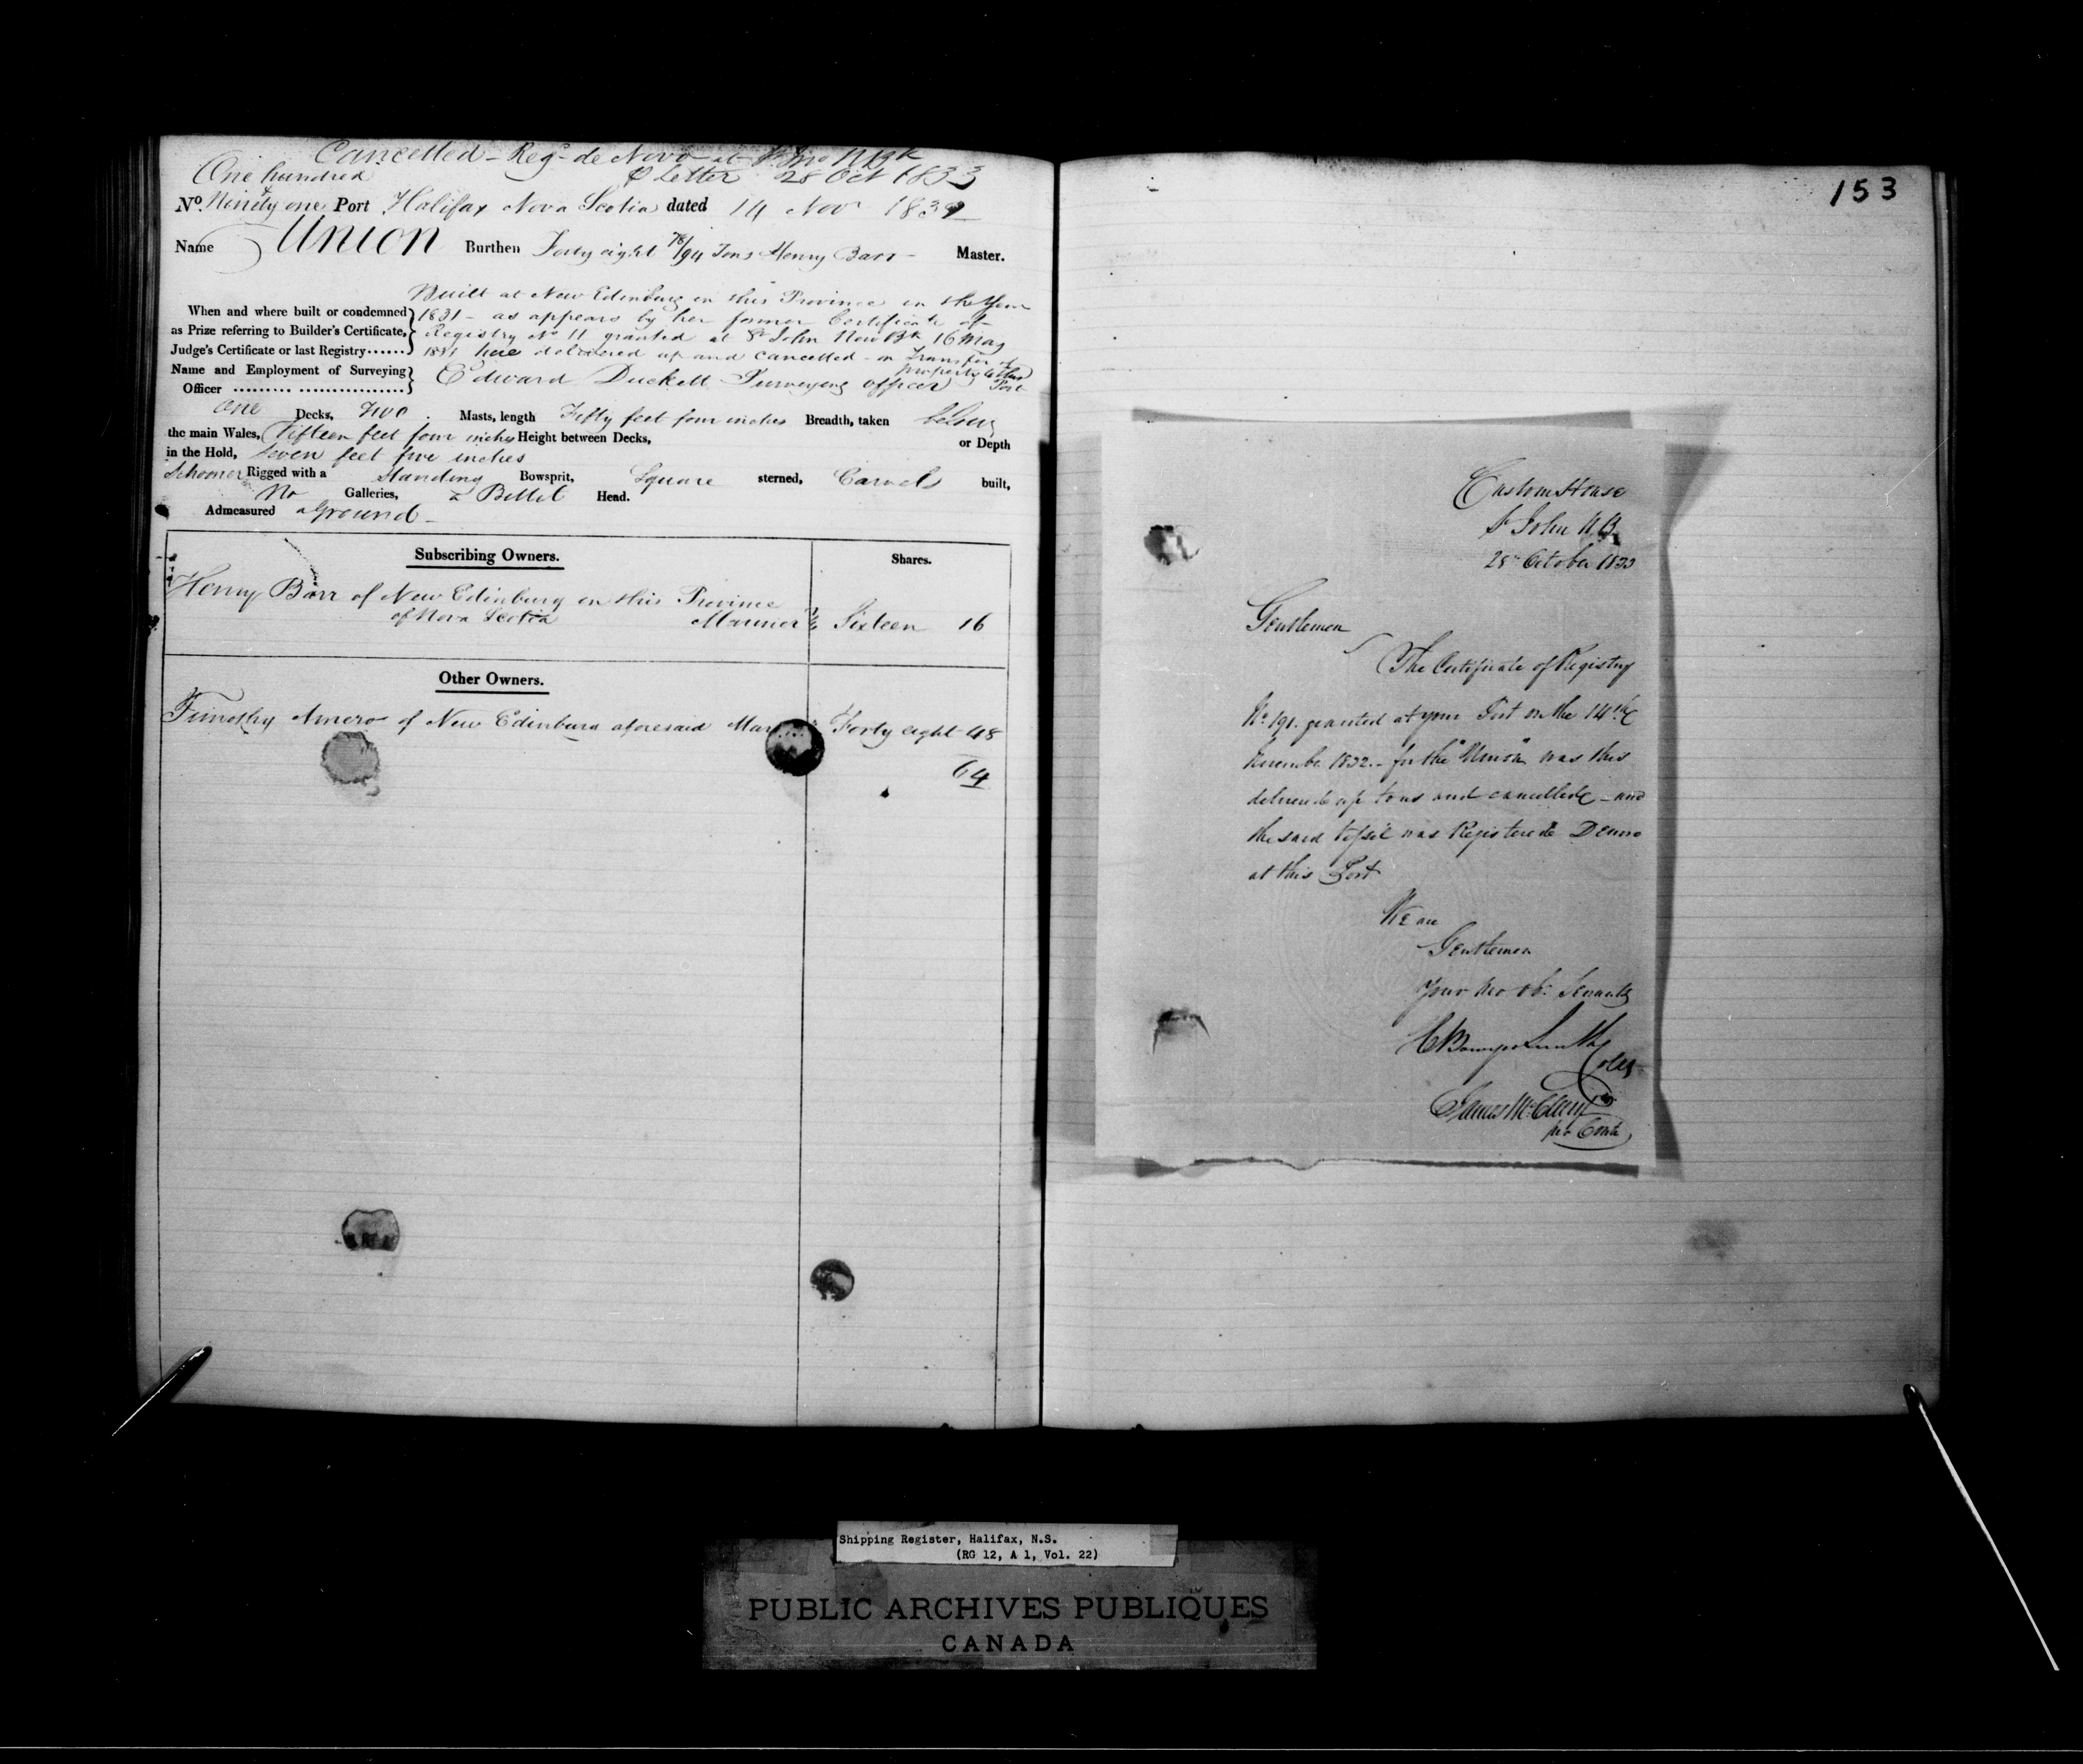 Cancelled - Regd. de Novo at St Jno N Bk
One hundred P Letter 28 Oct 1833
No. & Ninety one Port Halifax Nova Scotia dated 14 Novr 1832
Name Union Burthen Forty eight 78/94 Tons Henry Barr - Master.
Built at New Edinburg in this Province in the Year
When and where built or condemned 1831 - as appears by her former Certificate of
as Prize referring to Builder's Certificate, Registry No 11 granted at St John New Bk 16 May
Judge's Certificate or last Registry...... 1831 here delivered up and cancelled - on Transfer of
property to this Port
Name and Employment of Surveying Officer Edward Duckett Surveying officer
One Decks, Two Masts, length Fifty feet four inches Breadth, taken below
the main Wales, Fifteen feet four inches Height between Decks, or Depth
in the Hold, Seven feet five inches
Schooner Rigged with a Standing Bowsprit, Square sterned, Carvel built,
No Galleries, a Billet Head.
Admeasured aground -
Subscribing Owners. Shares.
Henry Barr of New Edinburg in this Province
of Nova Scotia Mariner Sixteen 16
Other Owners.
Timothy Amero of New Edinburg aforesaid Forty eight 48
64
153
Custom House
St John N.B.
28th October 1833
Gentlemen
The Certificate of Registry
No. 191. granted at your Port on the 14th
November 1832 - for the "Union" was this
delivered up to us and cancelled - and
the said Vessel was Registered Denovo
at this Port
We are
Gentlemen
Your Mo Ob: Servants
H Bowyer Smith
Coll
James
Shipping Register, Halifax, N.S.
(RG 12, A 1, Vol. 22)
PUBLIC ARCHIVES PUBLIQUES
CANADA